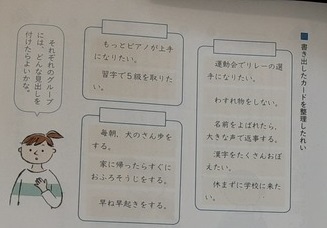 書き出したカードを整理したれい
運動会でリレーの選
手になりたい。
わすれ物をしない。
名前をよばれたら、
大きな声で返事する。
漢字をたくさんおぼ
えたい。
休まずに学校に来た
い。
もっとピアノが上手
になりたい。
習字で5級を取りた
い。
毎朝、犬のさん歩を
する。
家に帰ったらすぐに
おふろそうじをする。
早ね早起きをする。
それぞれのグループ
には、どんな見出しを
付けたらよいかな。